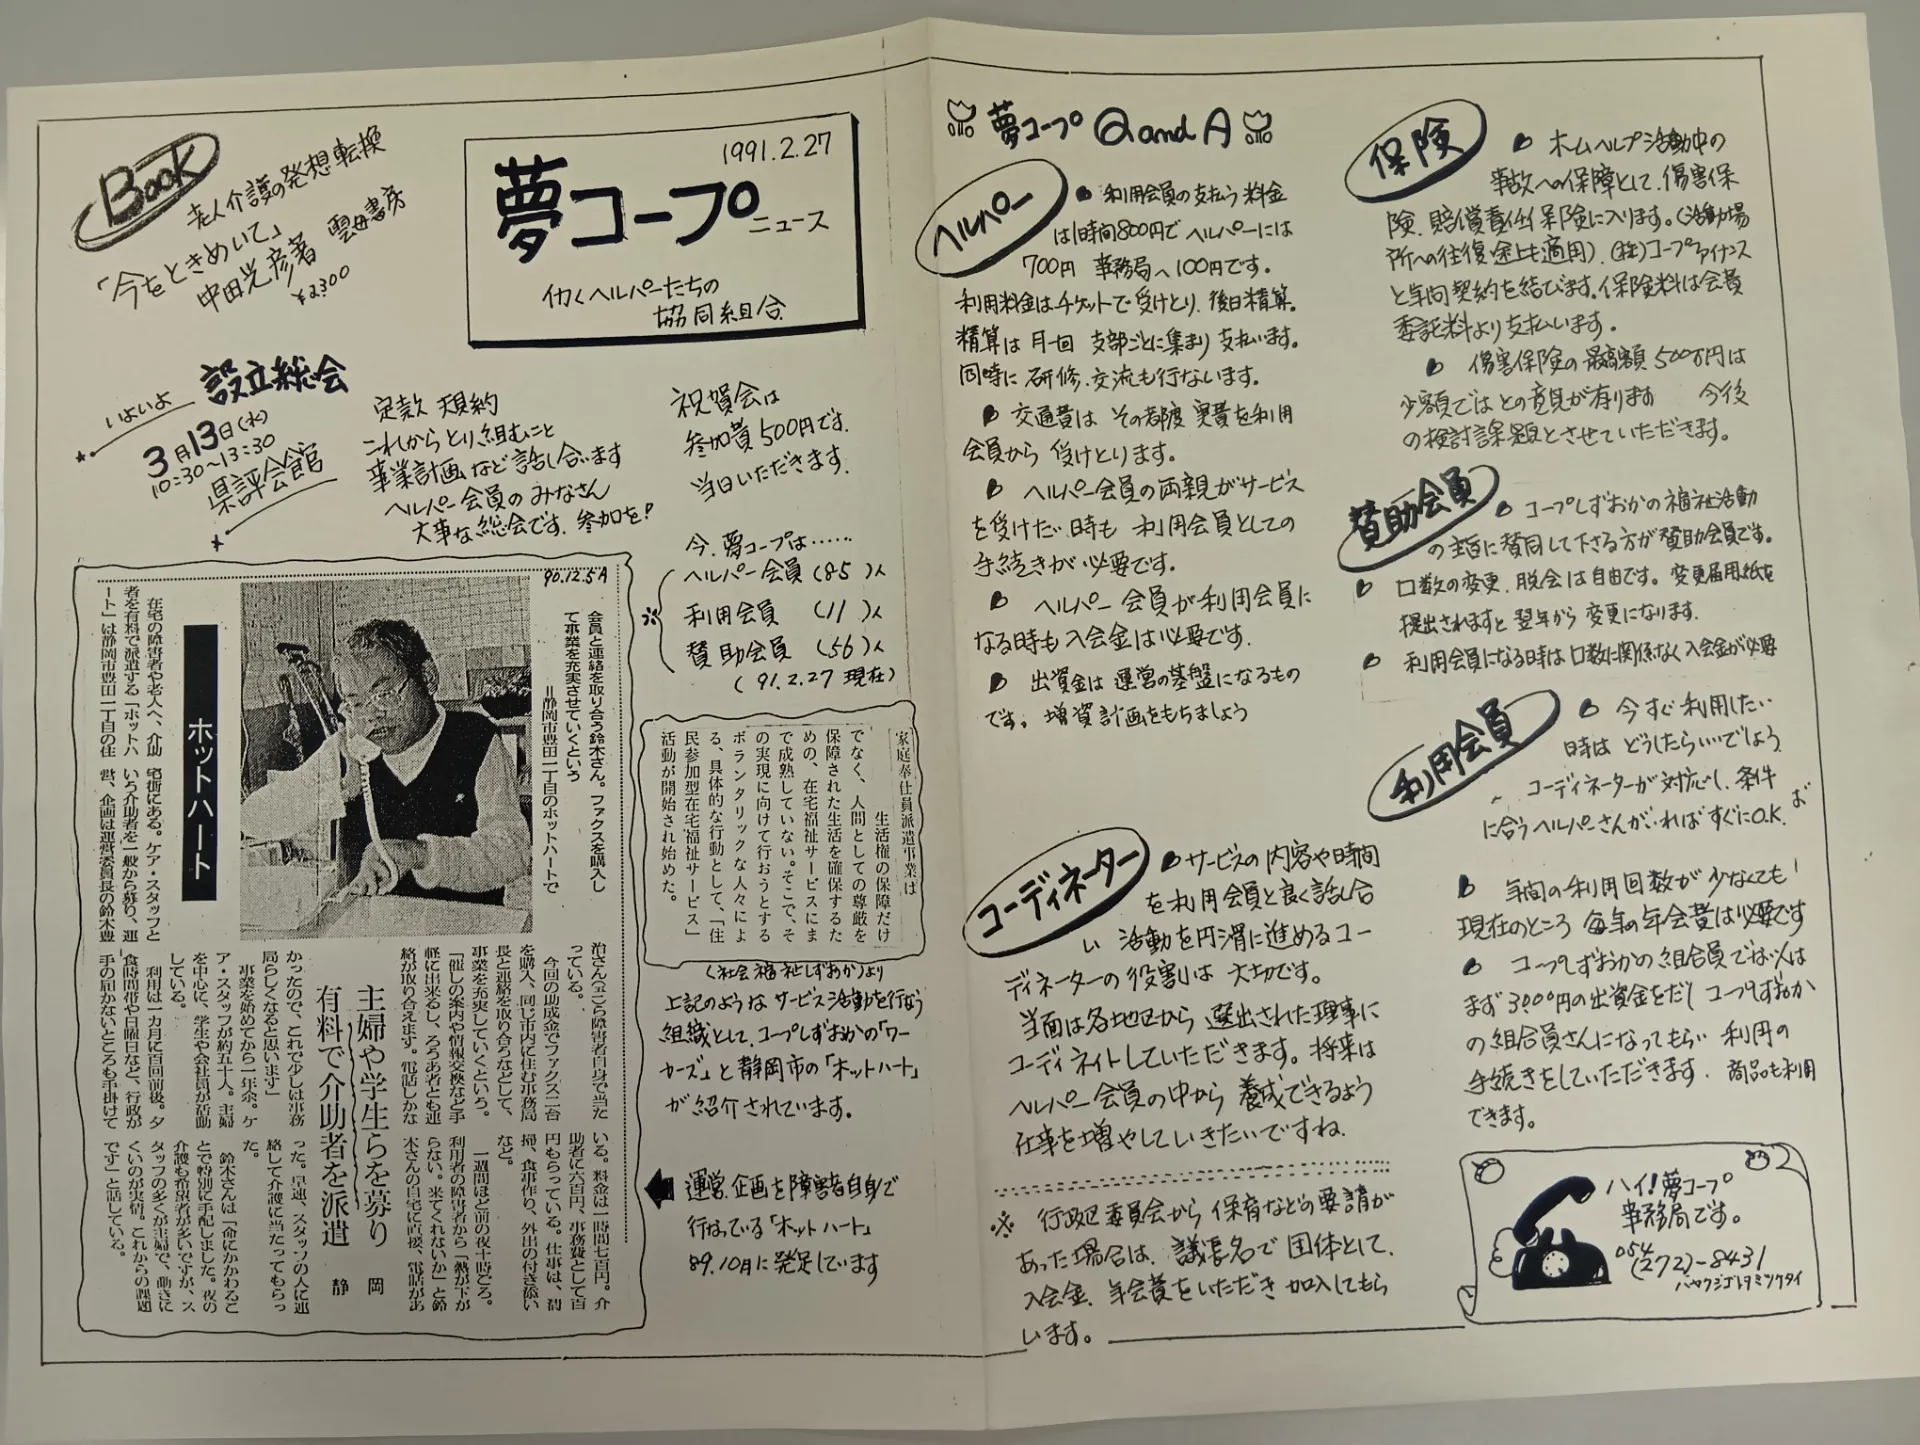 Book
老人介護の発想転換
「今をときめいて」
中田光彦著 雲母書房
¥2300
1991.2.27
夢コープ
ニュース
働くヘルパーたちの
協同組合
いよいよ 設立総会
3月13日(水)
10:30〜13:30
県評会館
定款 規約
これからとり組むこと
事業計画など話し合います
ヘルパー会員のみなさん
大事な総会です。参加を!
祝賀会は
参加費500円です。
当日いただきます。
今、夢コープは……
ヘルパー会員 (85)人
※ 利用会員 (11)人
賛助会員 (56)人
(91.2.27 現在)
90.12.5A
会員と連絡を取り合う鈴木さん。ファクスを購入し
て事業を充実させていくという
=静岡市豊田一丁目のホットハートで
ホットハート
主婦や学生らを募り
有料で介助者を派遣
静岡
在宅の障害者や老人へ、介助
者を有料で派遣する「ホットハ
ート」は静岡市豊田一丁目の住
宅街にある。ケア・スタッフと
いう介助者を一般から募り、運
営、企画は運営委員長の鈴木豊
治さん(五こら障害者自身で当た
っている。
今回の助成金でファクス二台
を購入、同じ市内に住む事務局
長と連絡を取り合うなどして、
事業を充実していくという。
「催しの案内や情報交換など手
軽に出来るし、ろうあ者とも連
絡が取り合えます。電話しかな
かったので、これで少しは事務
局らしくなると思います」
事業を始めてから一年余。ケ
ア・スタッフが約五十人。主婦
を中心に、学生や会社員が活動
している。
利用は一カ月に百回前後。夕
食時間帯や日曜日など、行政が
手の届かないところも手掛けて
いる。料金は一時間七百円。介
助者に六百円、事務費として百
円もらっている。仕事は、掃
除、食事作り、外出の付き添い
など。
一週間ほど前の夜十時ごろ。
利用者の障害者から「熱が下が
らない。来てくれないか」と鈴
木さんの自宅に直接、電話があ
った。早速、スタッフの人に連
絡して介護に当たってもらっ
た。
鈴木さんは「命にかかわるこ
とで特別に手配しました。夜の
介護も希望者が多いですが、ス
タッフの多くが主婦で、動きに
くいのが実情。これからの課題
です」と話している。
家庭奉仕員派遣事業は
生活権の保障だけ
でなく、人間としての尊厳を
保障された生活を確保するた
めの、在宅福祉サービスにま
で成熟していない。そこで、そ
の実現に向けて行おうとする
ボランタリックな人々によ
る、具体的な行動として、「住
民参加型在宅福祉サービス」
活動が開始され始めた。
(社会福祉しずおか)より
上記のようなサービス活動を行なう
組織として、コープしずおかの「ワー
カーズ」と静岡市の「ホットハート」
が紹介されています。
運営、企画を障害者自身で
行なっている「ホットハート」
89.10月に発足しています
夢コープ Q and A
ヘルパー
利用会員の支払う料金
は1時間800円でヘルパーには
700円 事務局へ100円です。
利用料金はチケットで受けとり、後日精算。
精算は月一回 支部ごとに集まり支払います。
同時に研修、交流も行ないます。
交通費は その都度 実費を利用
会員から受けとります。
ヘルパー会員の両親がサービス
を受けたい時も 利用会員としての
手続きが必要です。
ヘルパー会員が利用会員に
なる時も入会金は必要です。
出資金は運営の基盤になるもの
です。増資計画をもちましょう
コーディネーター
サービスの内容や時間
を利用会員と良く話し合
い 活動を円滑に進めるコー
ディネーターの役割は 大切です。
当面は各地区から選出された理事に
コーディネイトしていただきます。将来は
ヘルパー会員の中から養成できるよう
仕事を増やしていきたいですね。
※ 行政区委員会から保育などの要請が
あった場合は、議長名で団体として、
入会金、年会費をいただき加入してもら
います。
保険
ホームヘルプ活動中の
事故への保障として、傷害保
険、賠償責任保険に入ります。(活動場
所への往復途上も適用)、(株)コープファイナンス
と年間契約を結びます。保険料は会員
委託料より支払います。
傷害保険の最高額500万円は
少額ではとの意見が有ります 今後
の検討課題とさせていただきます。
賛助会員
コープしずおかの福祉活動
の主旨に賛同して下さる方が賛助会員です。
口数の変更、脱会は自由です。変更届用紙を
提出されますと翌年から変更になります。
利用会員になる時は口数に関係なく入会金が必要
利用会員
今すぐ利用したい
時はどうしたらいいでしょう
コーディネーターが対応し、条件
に合うヘルパーさんがいればすぐにO.K.
年間の利用回数が少なくても
現在のところ 毎年の年会費は必要です
コープしずおかの組合員でない人は
まず3000円の出資金をだしコープしずおか
の組合員さんになってもらい 利用の
手続きをしていただきます。商品も利用
できます。
ハイ!夢コープ
事務局です。
054
(272)-8431